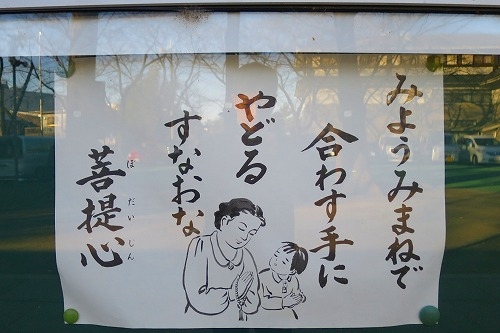 みようみまねで
合わす手に
やどる
すなおな
菩提心
ぼだいしん